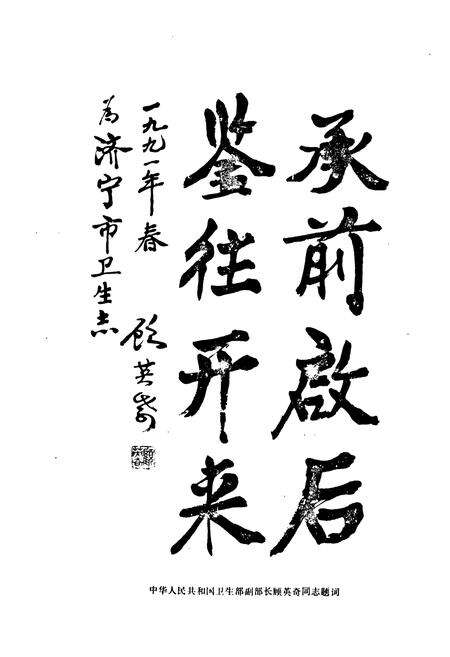 承前啟后
鉴往开来
一九九一年春
为济宁市卫生志
顾英奇
中华人民共和国卫生部副部长顾英奇同志题词